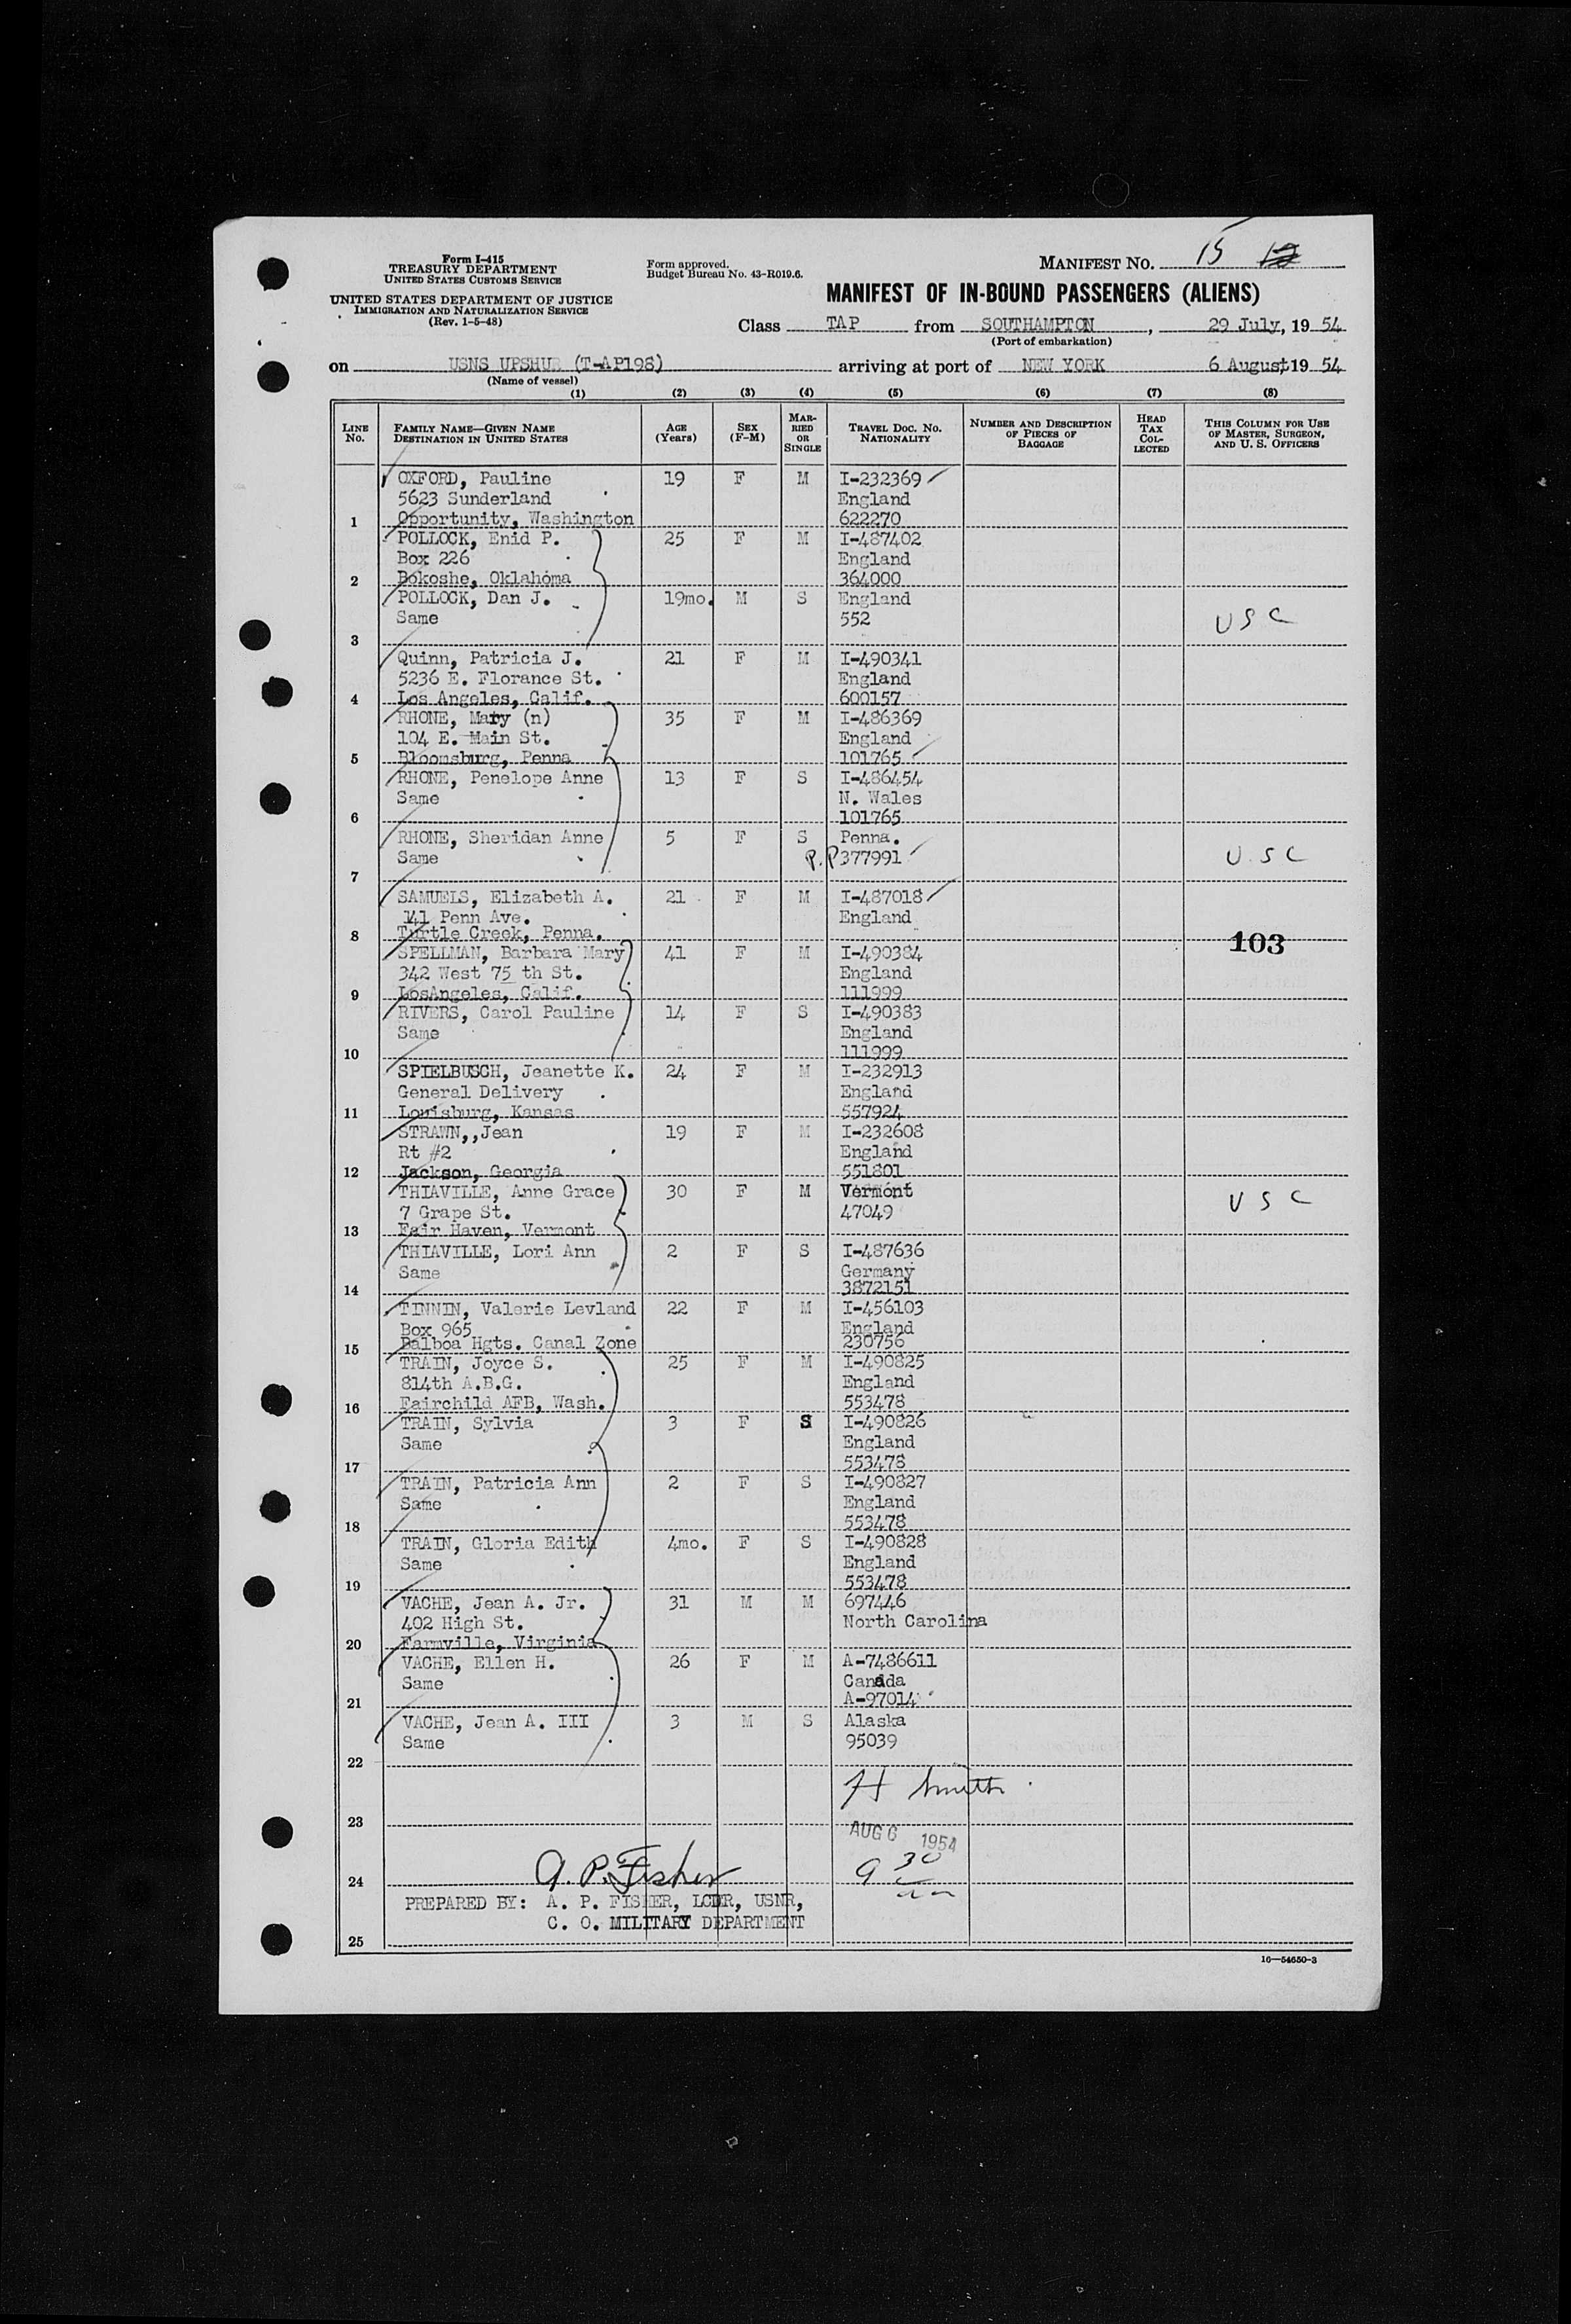 Form I-415
TREASURY DEPARTMENT
UNITED STATES CUSTOMS SERVICE
UNITED STATES DEPARTMENT OF JUSTICE
IMMIGRATION AND NATURALIZATION SERVICE
(Rev. 1-5-48)
Form approved.
Budget Bureau No. 43-R019.6.
MANIFEST No. 15
MANIFEST OF IN-BOUND PASSENGERS (ALIENS)
Class TAP from SOUTHAMPTON, 29 July, 1954
(Port of embarkation)
on USNS UPSHUR (T-AP198) arriving at port of NEW YORK 6 August 1954
(Name of vessel)
(1) (2) (3) (4) (5) (6) (7) (8)
LINE No. FAMILY NAME—GIVEN NAME DESTINATION IN UNITED STATES AGE (Years) SEX (F-M) MARRIED OR SINGLE TRAVEL DOC. NO. NATIONALITY NUMBER AND DESCRIPTION OF PIECES OF BAGGAGE HEAD TAX COLLECTED THIS COLUMN FOR USE OF MASTER, SURGEON, AND U. S. OFFICERS
OXFORD, Pauline 19 F M I-232369
5623 Sunderland England
1 Opportunity, Washington 622270
POLLOCK, Enid P. 25 F M I-487402
Box 226 England
2 Bokoshe, Oklahoma 364000
POLLOCK, Dan J. 19mo. M S England
Same 552 USC
3
Quinn, Patricia J. 21 F M I-490341
5236 E. Florance St. England
4 Los Angeles, Calif. 600157
RHONE, Mary (n) 35 F M I-486369
104 E. Main St. England
5 Bloomsburg, Penna 101765
RHONE, Penelope Anne 13 F S I-486454
Same N. Wales
6 101765
RHONE, Sheridan Anne 5 F S Penna.
Same P.P 377991 U.S C
7
SAMUELS, Elizabeth A. 21 F M I-487018
141 Penn Ave. England
8 Turtle Creek, Penna.
103
SPELLMAN, Barbara Mary 41 F M I-490384
342 West 75 th St. England
9 LosAngeles, Calif. 111999
RIVERS, Carol Pauline 14 F S I-490383
Same England
10 111999
SPIELBUSCH, Jeanette K. 24 F M I-232913
General Delivery England
11 Louisburg, Kansas 557924
STRAWN,,Jean 19 F M I-232608
Rt #2 England
12 Jackson, Georgia 551801
THIAVILLE, Anne Grace 30 F M Vermont
7 Grape St. 47049 USC
13 Fair Haven, Vermont
THIAVILLE, Lori Ann 2 F S I-487636
Same Germany
14 3872151
TINNIN, Valerie Levland 22 F M I-456103
Box 965 England
15 Balboa Hgts. Canal Zone 230756
TRAIN, Joyce S. 25 F M I-490825
814th A.B.G. England
16 Fairchild AFB, Wash. 553478
TRAIN, Sylvia 3 F S I-490826
Same England
17 553478
TRAIN, Patricia Ann 2 F S I-490827
Same England
18 553478
TRAIN, Gloria Edith 4mo. F S I-490828
Same England
19 553478
VACHE, Jean A. Jr. 31 M M 697446
402 High St. North Carolina
20 Farmville, Virginia
VACHE, Ellen H. 26 F M A-7486611
Same Canada
21 A-97014
VACHE, Jean A. III 3 M S Alaska
Same 95039
22
H Smith
23
AUG 6 1954
A. P. Fisher 9 30
24 am
PREPARED BY: A. P. FISHER, LCDR, USNR,
C. O. MILITARY DEPARTMENT
25
16—54650-3